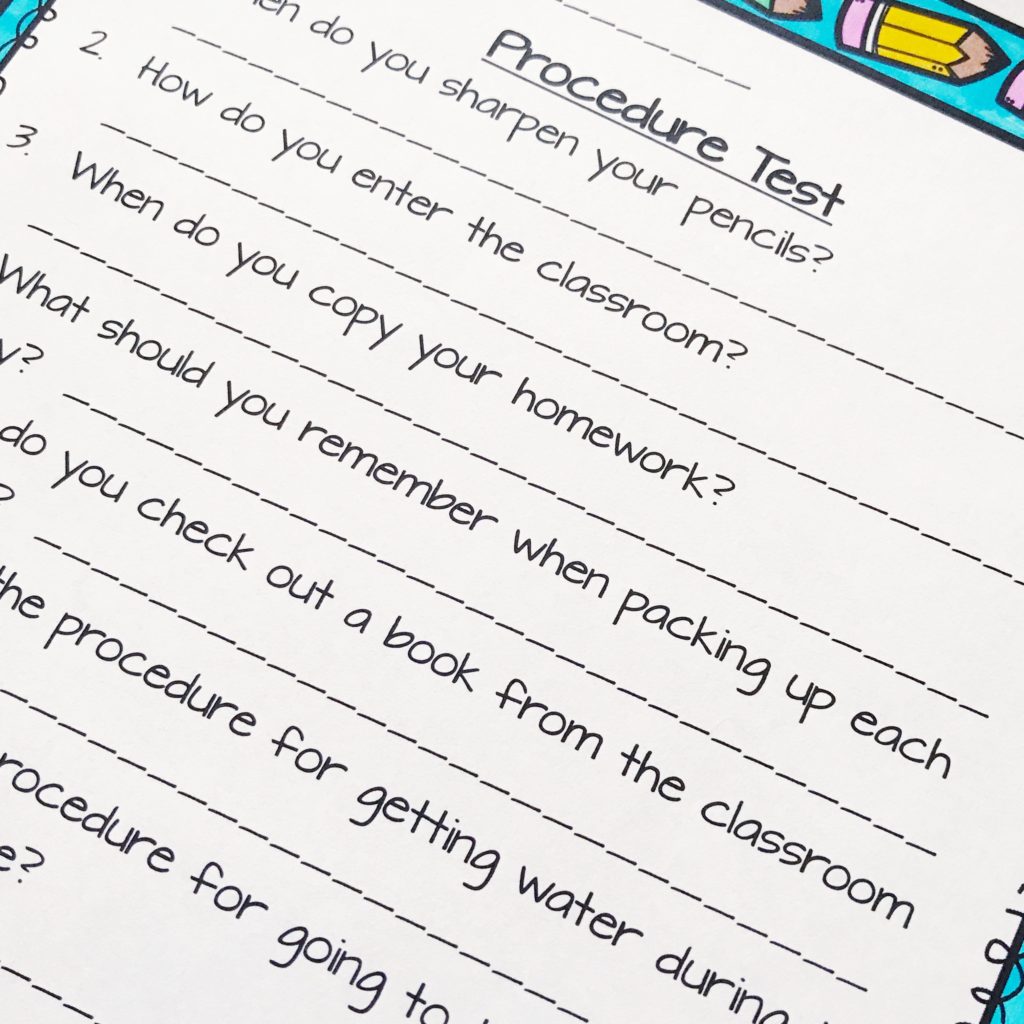 Procedure Test
do you sharpen your pencils?
2. How do you enter the classroom?
3. When do you copy your homework?
What should you remember when packing up each
y?
do you check out a book from the classroom
?
the procedure for getting water during
procedure for going to
e?